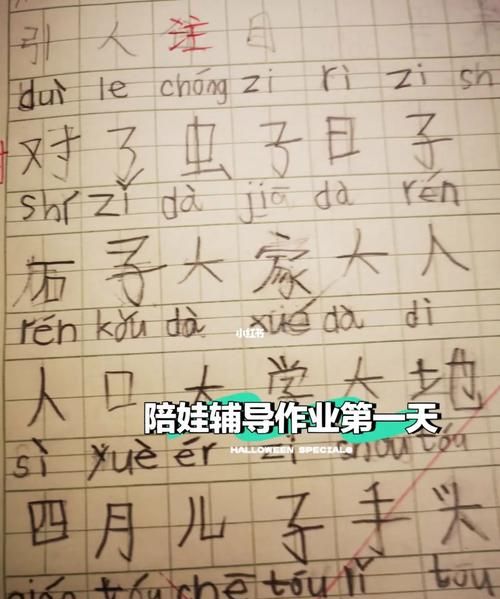 引 人 注 目
duì le chóng zi rì zi sh
对 了 虫 子 日 子
shí zǐ dà jiā dà rén
石 子 大 家 大 人
rén kǒu dà xué dà dì
小红书
人 口 大 学 大 地
陪娃辅导作业第一天
HALLOWEEN SPECIALS
sì yuè ér zi shǒu tóu
四 月 儿 子 手 头
tóu chē tóu lǐ tóu